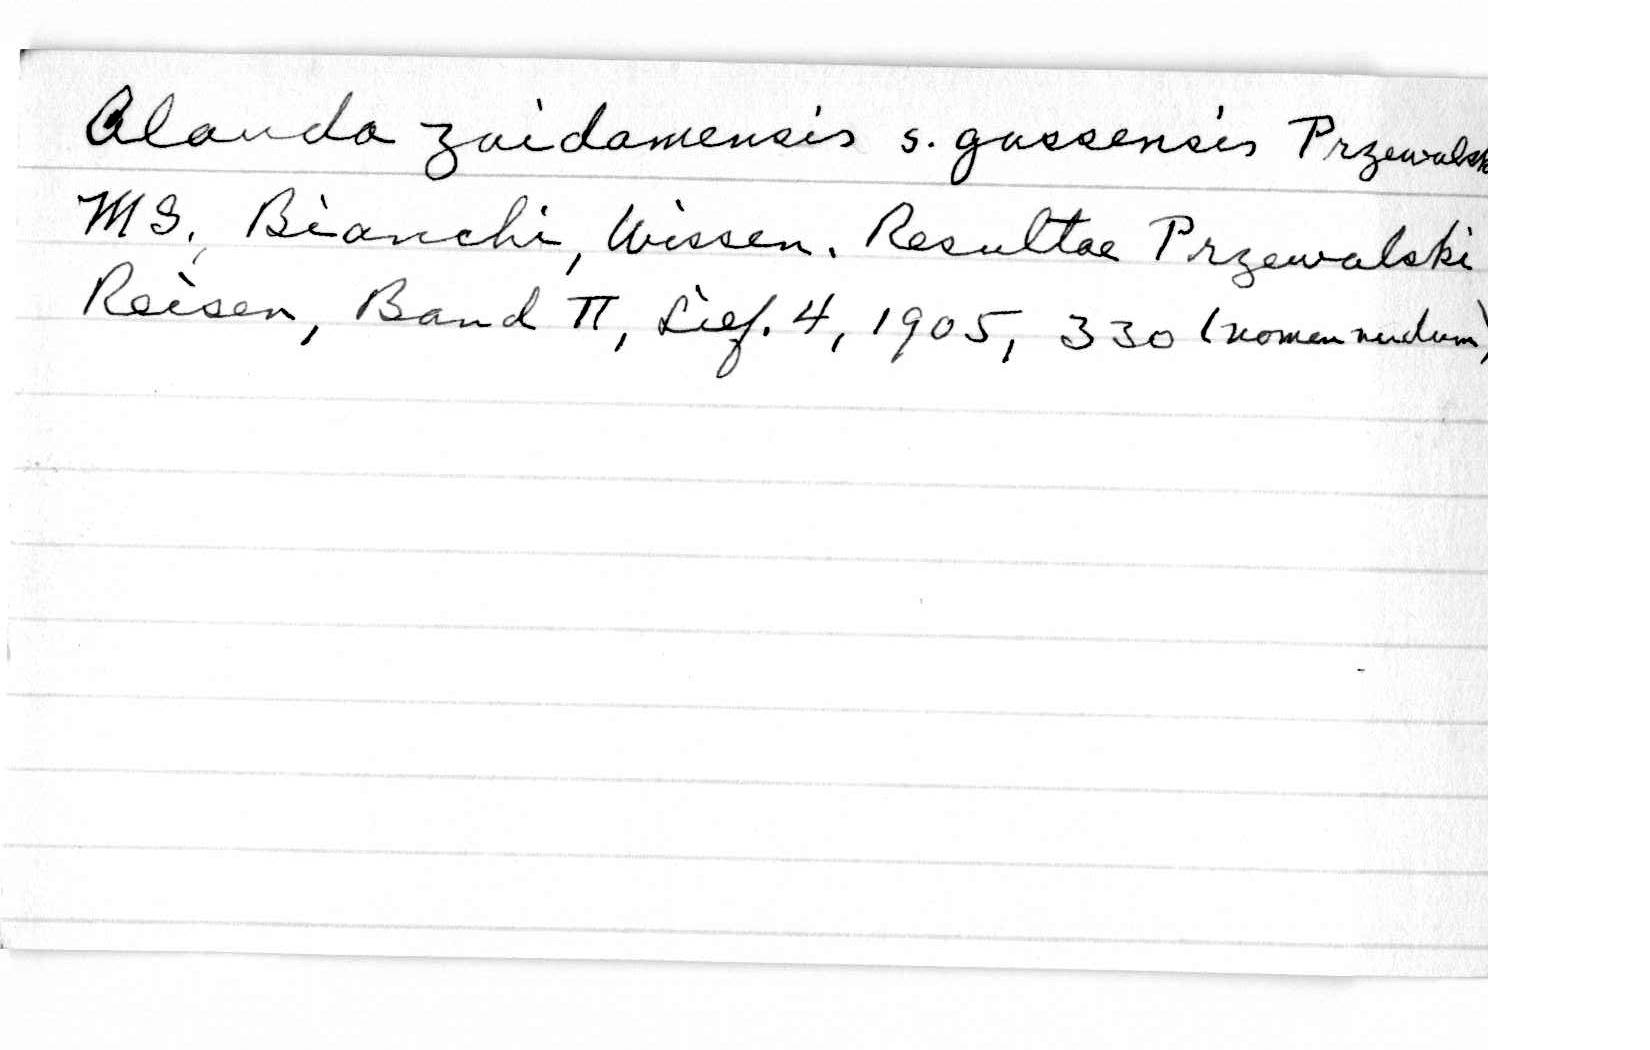 Alauda zaidamensis s. gassensis Przewalsk
MS., Bianchi, Wissen. Resultae Przewalski
Reisen, Band II, Lief. 4, 1905, 330 (nomen nudum)